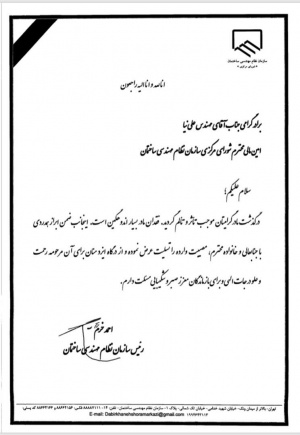 سازمان نظام مهندسی ساختمان
انا لله و انا الیه راجعون
برادر گرامی جناب آقای مهندس علی نیا
امین مالی محترم شورای مرکزی سازمان نظام مهندسی ساختمان
سلام علیکم؛
درگذشت مادر گرامیتان موجب تاثر و تالم گردید. فقدان مادر بسیار اندوهگین است. اینجانب ضمن ابراز همدردی
با جنابعالی و خانواده محترم، مصیبت وارده را تسلیت عرض نموده و از درگاه ایزد منان برای آن مرحومه رحمت
و علو درجات الهی و برای بازماندگان معزز صبر و شکیبایی مسئلت دارم.
احمد خرم
رئیس سازمان نظام مهندسی ساختمان
تهران، بالاتر از میدان ونک، خیابان شهید خدامی، خیابان تک شمالی، پلاک ۱، سازمان نظام مهندسی ساختمان
E-mail: Dabirkhanehshoramarkazi@gmail.com